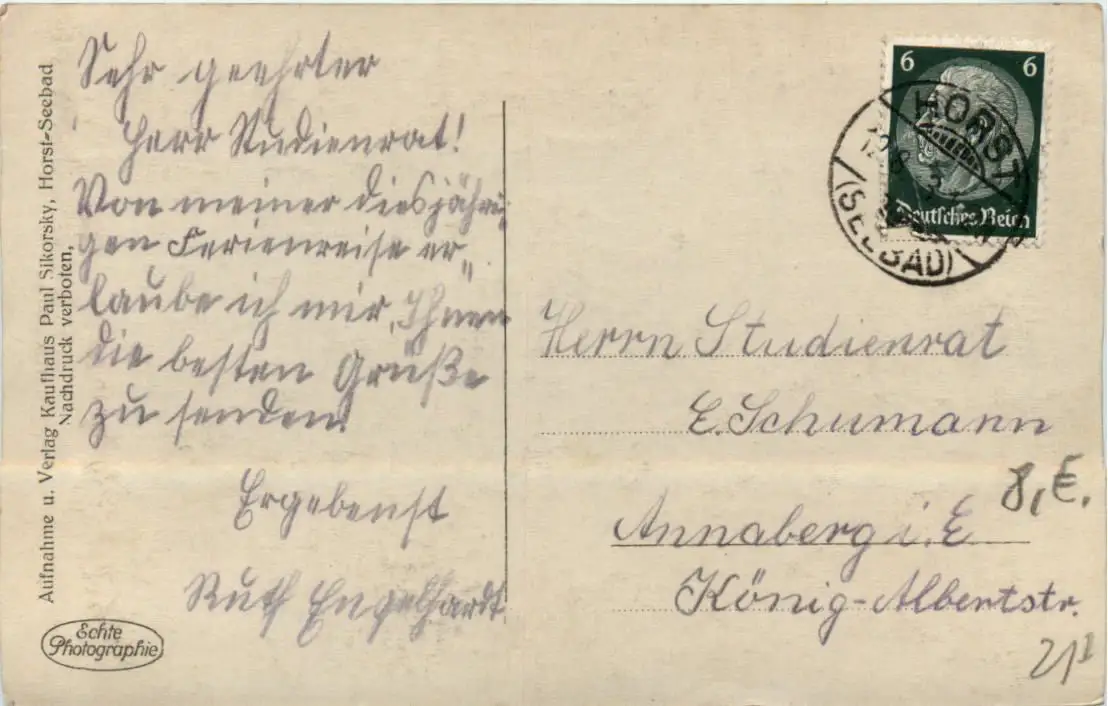 Aufnahme u. Verlag Kaufhaus Paul Sikorsky, Horst-Seebad
Nachdruck verboten,
Sehr geehrter
Herr Studienrat!
Von meiner diesjähri-
gen Ferienreise er„
laube ich mir, Ihnen
die besten Grüße
zu senden.
Ergebenst
Ruth Engelhardt
Echte
Photographie
6 6
Deutsches Reich
HORST
(SEEBAD)
Herrn Studienrat
E. Schumann
Annaberg i. E
König-Albertstr.
8,€.